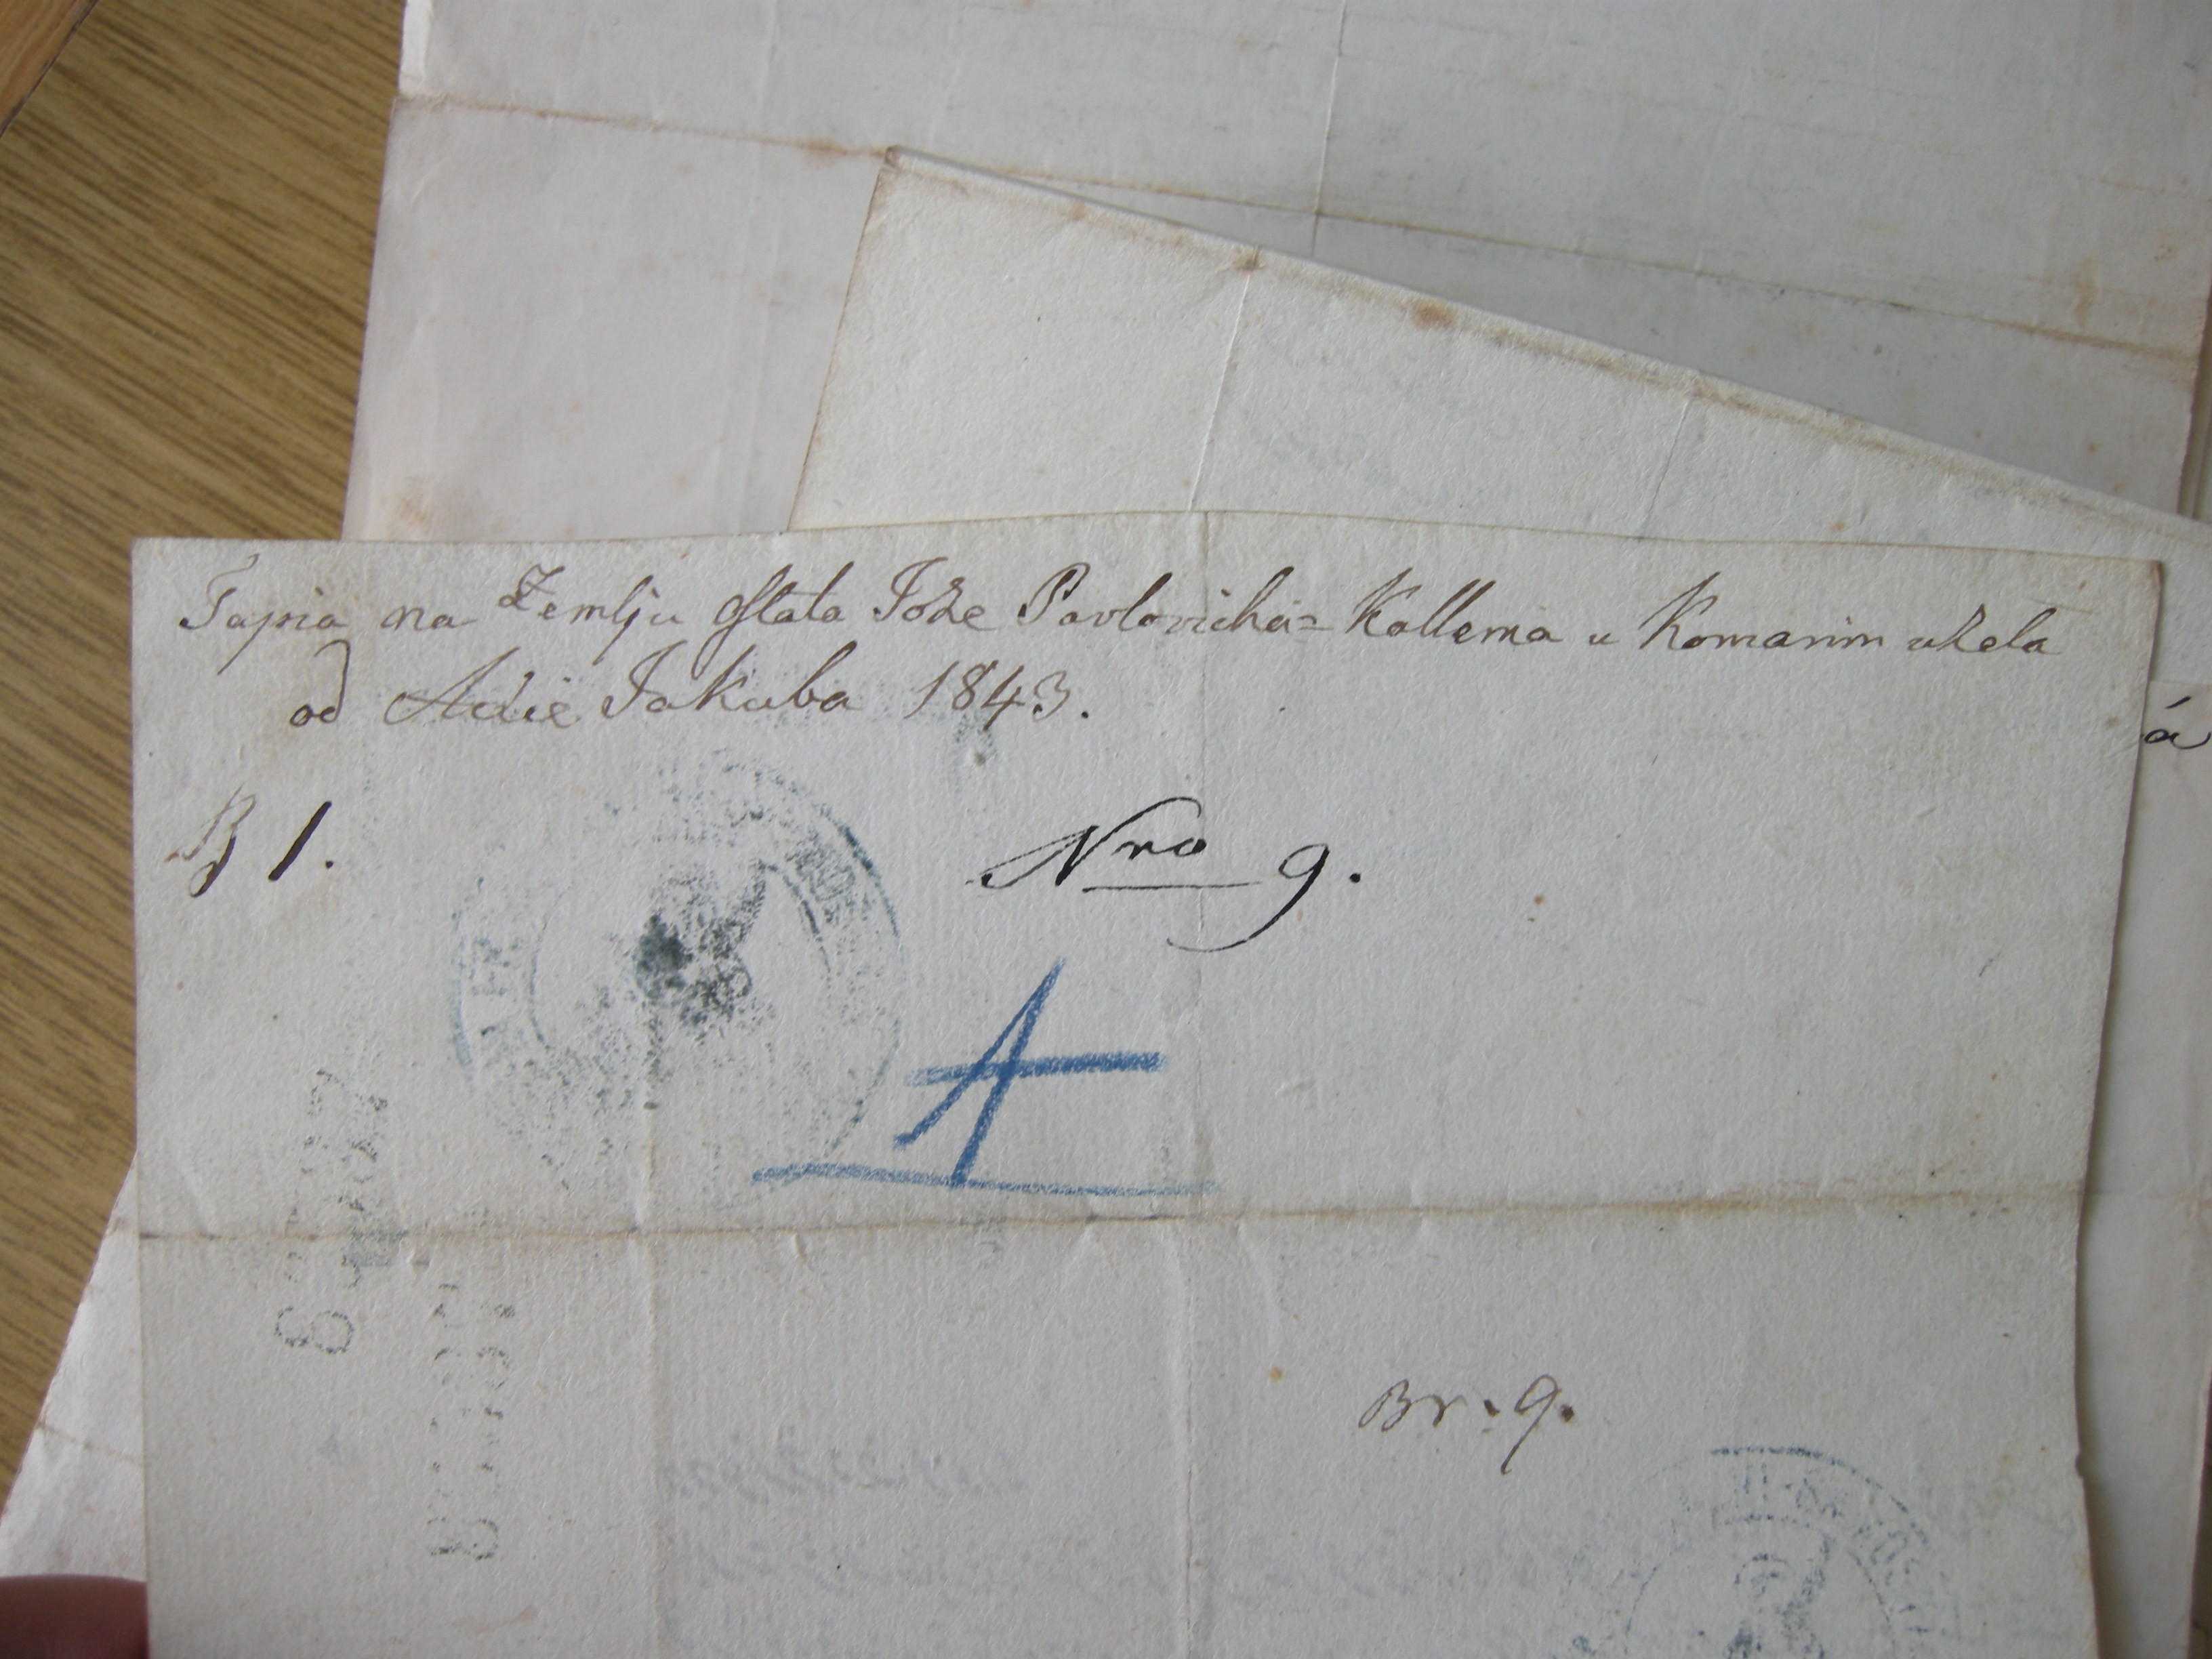 Tapia na Zemlju Ostala Jože Pavlovicha = Kallema u Komarim uzeta
od Adie Jakuba 1843.
B 1.
Nro 9.
A
Br. 9.
á